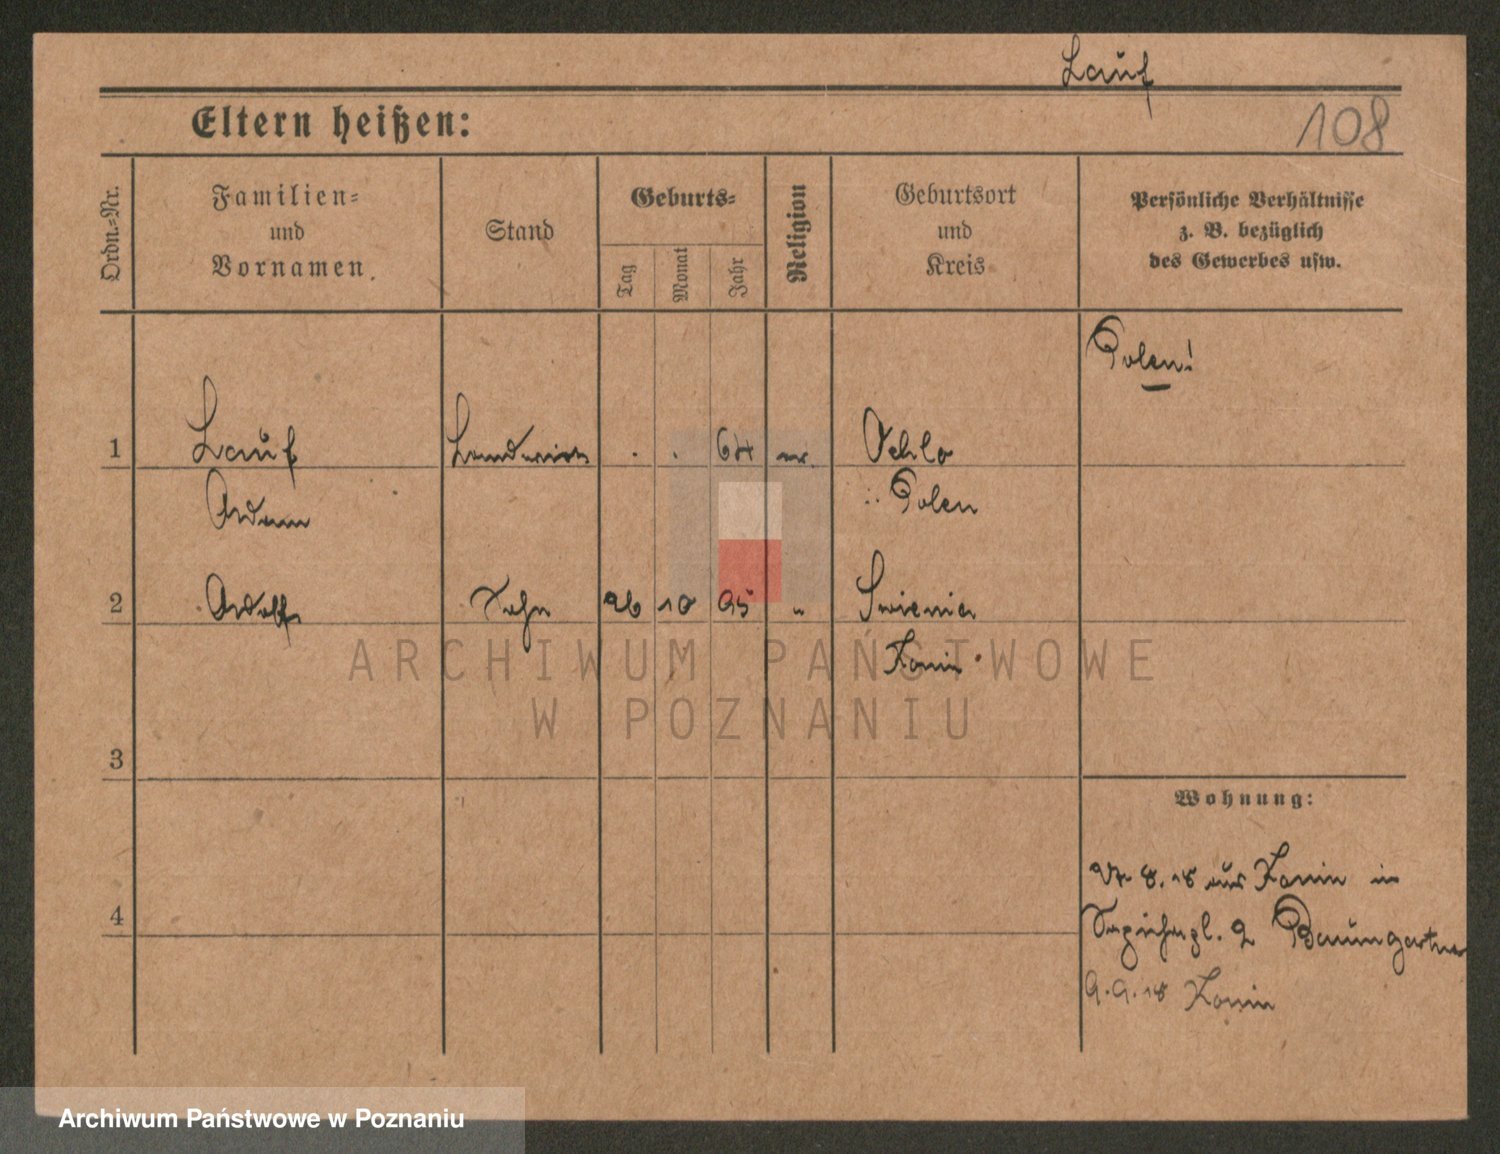 Lauf
Eltern heißen:
108
Ordn.-Nr.
Familien-
und
Vornamen.
Stand
Geburts-
Tag
Monat
Jahr
Religion
Geburtsort
und
Kreis
Persönliche Verhältnisse
z. B. bezüglich
des Gewerbes usw.
Polen!
1
Lauf
Landwirt
. . 64
Ochlo
Adam
Polen
2
Adolf
Sohn
26 10 95 "
Swienia
Konin
ARCHIWUM PAŃSTWOWE
W POZNANIU
3
Wohnung:
8. 18 aus Konin in
4
2 Baumgartner
9.9.18 Konin
Archiwum Państwowe w Poznaniu